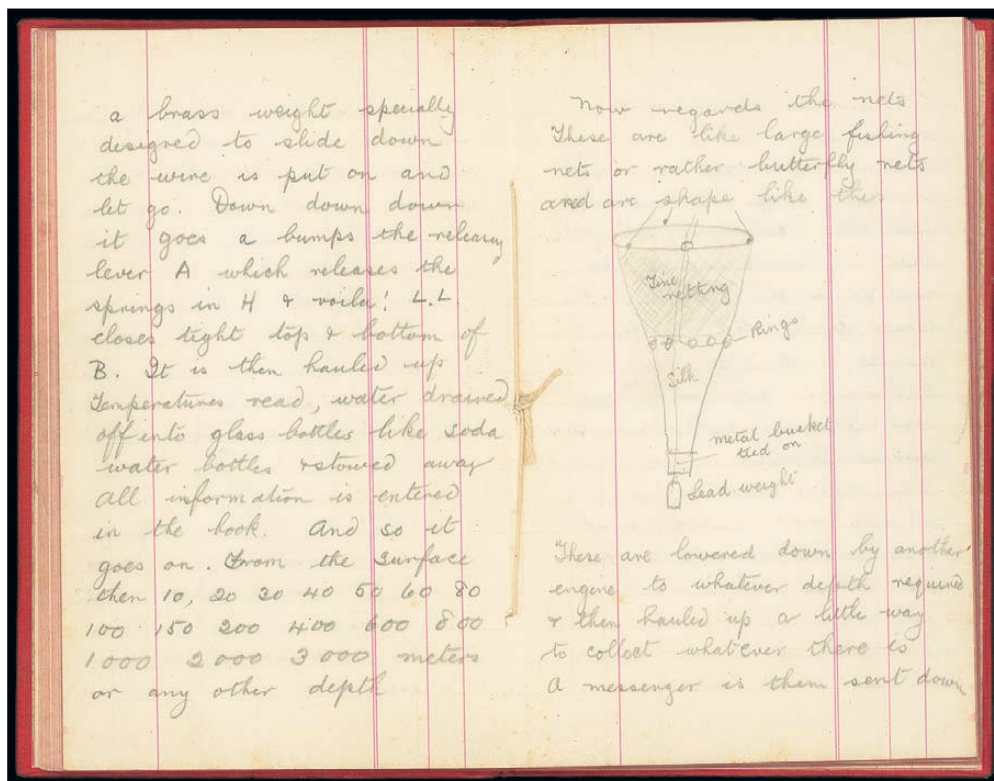 a brass weight specially
designed to slide down
the wire is put on and
let go. Down down down
it goes a bumps the releasing
lever A which releases the
springs in H & voila! L.L.
closes tight top & bottom of
B. It is then hauled up
Temperatures read, water drained
off into glass bottles like soda
water bottles & stowed away
all information is entered
in the book. And so it
goes on. From the surface
then 10, 20 30 40 50 60 80
100 150 200 400 600 800
1000 2000 3000 meters
or any other depth
Now regards the nets
These are like large fishing
nets or rather butterfly nets
and are shape like this
Fine
netting
Rings
Silk
metal bucket
tied on
Lead weight
These are lowered down by another
engine to whatever depth required
& then hauled up a little way
to collect whatever there is
A messenger is them sent down